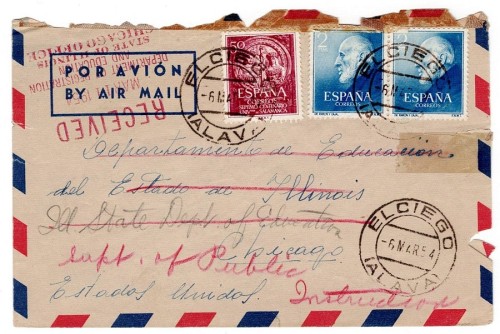 STATE OF ILLINOIS
CHICAGO OFFICE
POR AVIÓN
BY AIR MAIL
RECEIVED
MAR
DEPARTMENT
REGISTRATION
AND EDUCATION
50
ESPAÑA
CORREOS
SEPTIMO CENTENARIO
SALAMANCA
2
ESPAÑA
CORREOS
2
ESPAÑA
CORREOS
ELCIEGO
-6 MAR 54
(ALAVA)
Departamento de Educacion
del Estado de Illinois
Ill State Dept of Education
Chicago
Supt. of Public
Estados Unidos.
Instruction
ELCIEGO
-6 MAR 54
(ALAVA)